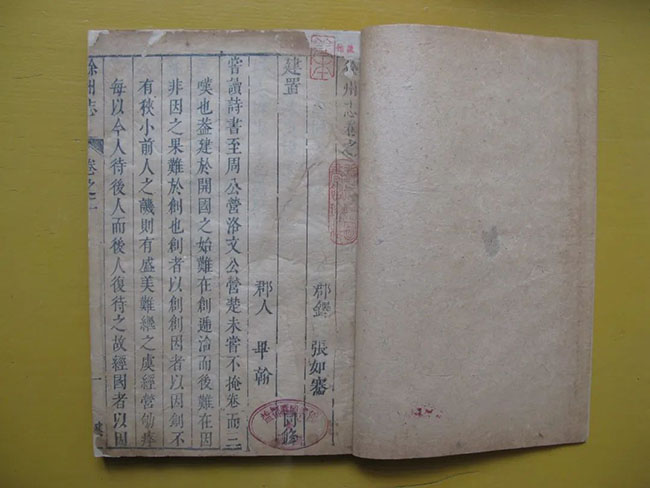 州志卷之
郡 張如
建置
郡人 畢翰 同修
嘗讀詩書至周公營洛文公營楚未嘗不掩卷而三
嘆也葢建於開國之始難在創逓洽而後難在因
非因之果難於創也創者以創創因者以因創不
有狹小前人之譏則有盛美難繼之虞經營勞瘁
每以今人待後人而後人復待之故經國者以因
徐州志 卷之二 一